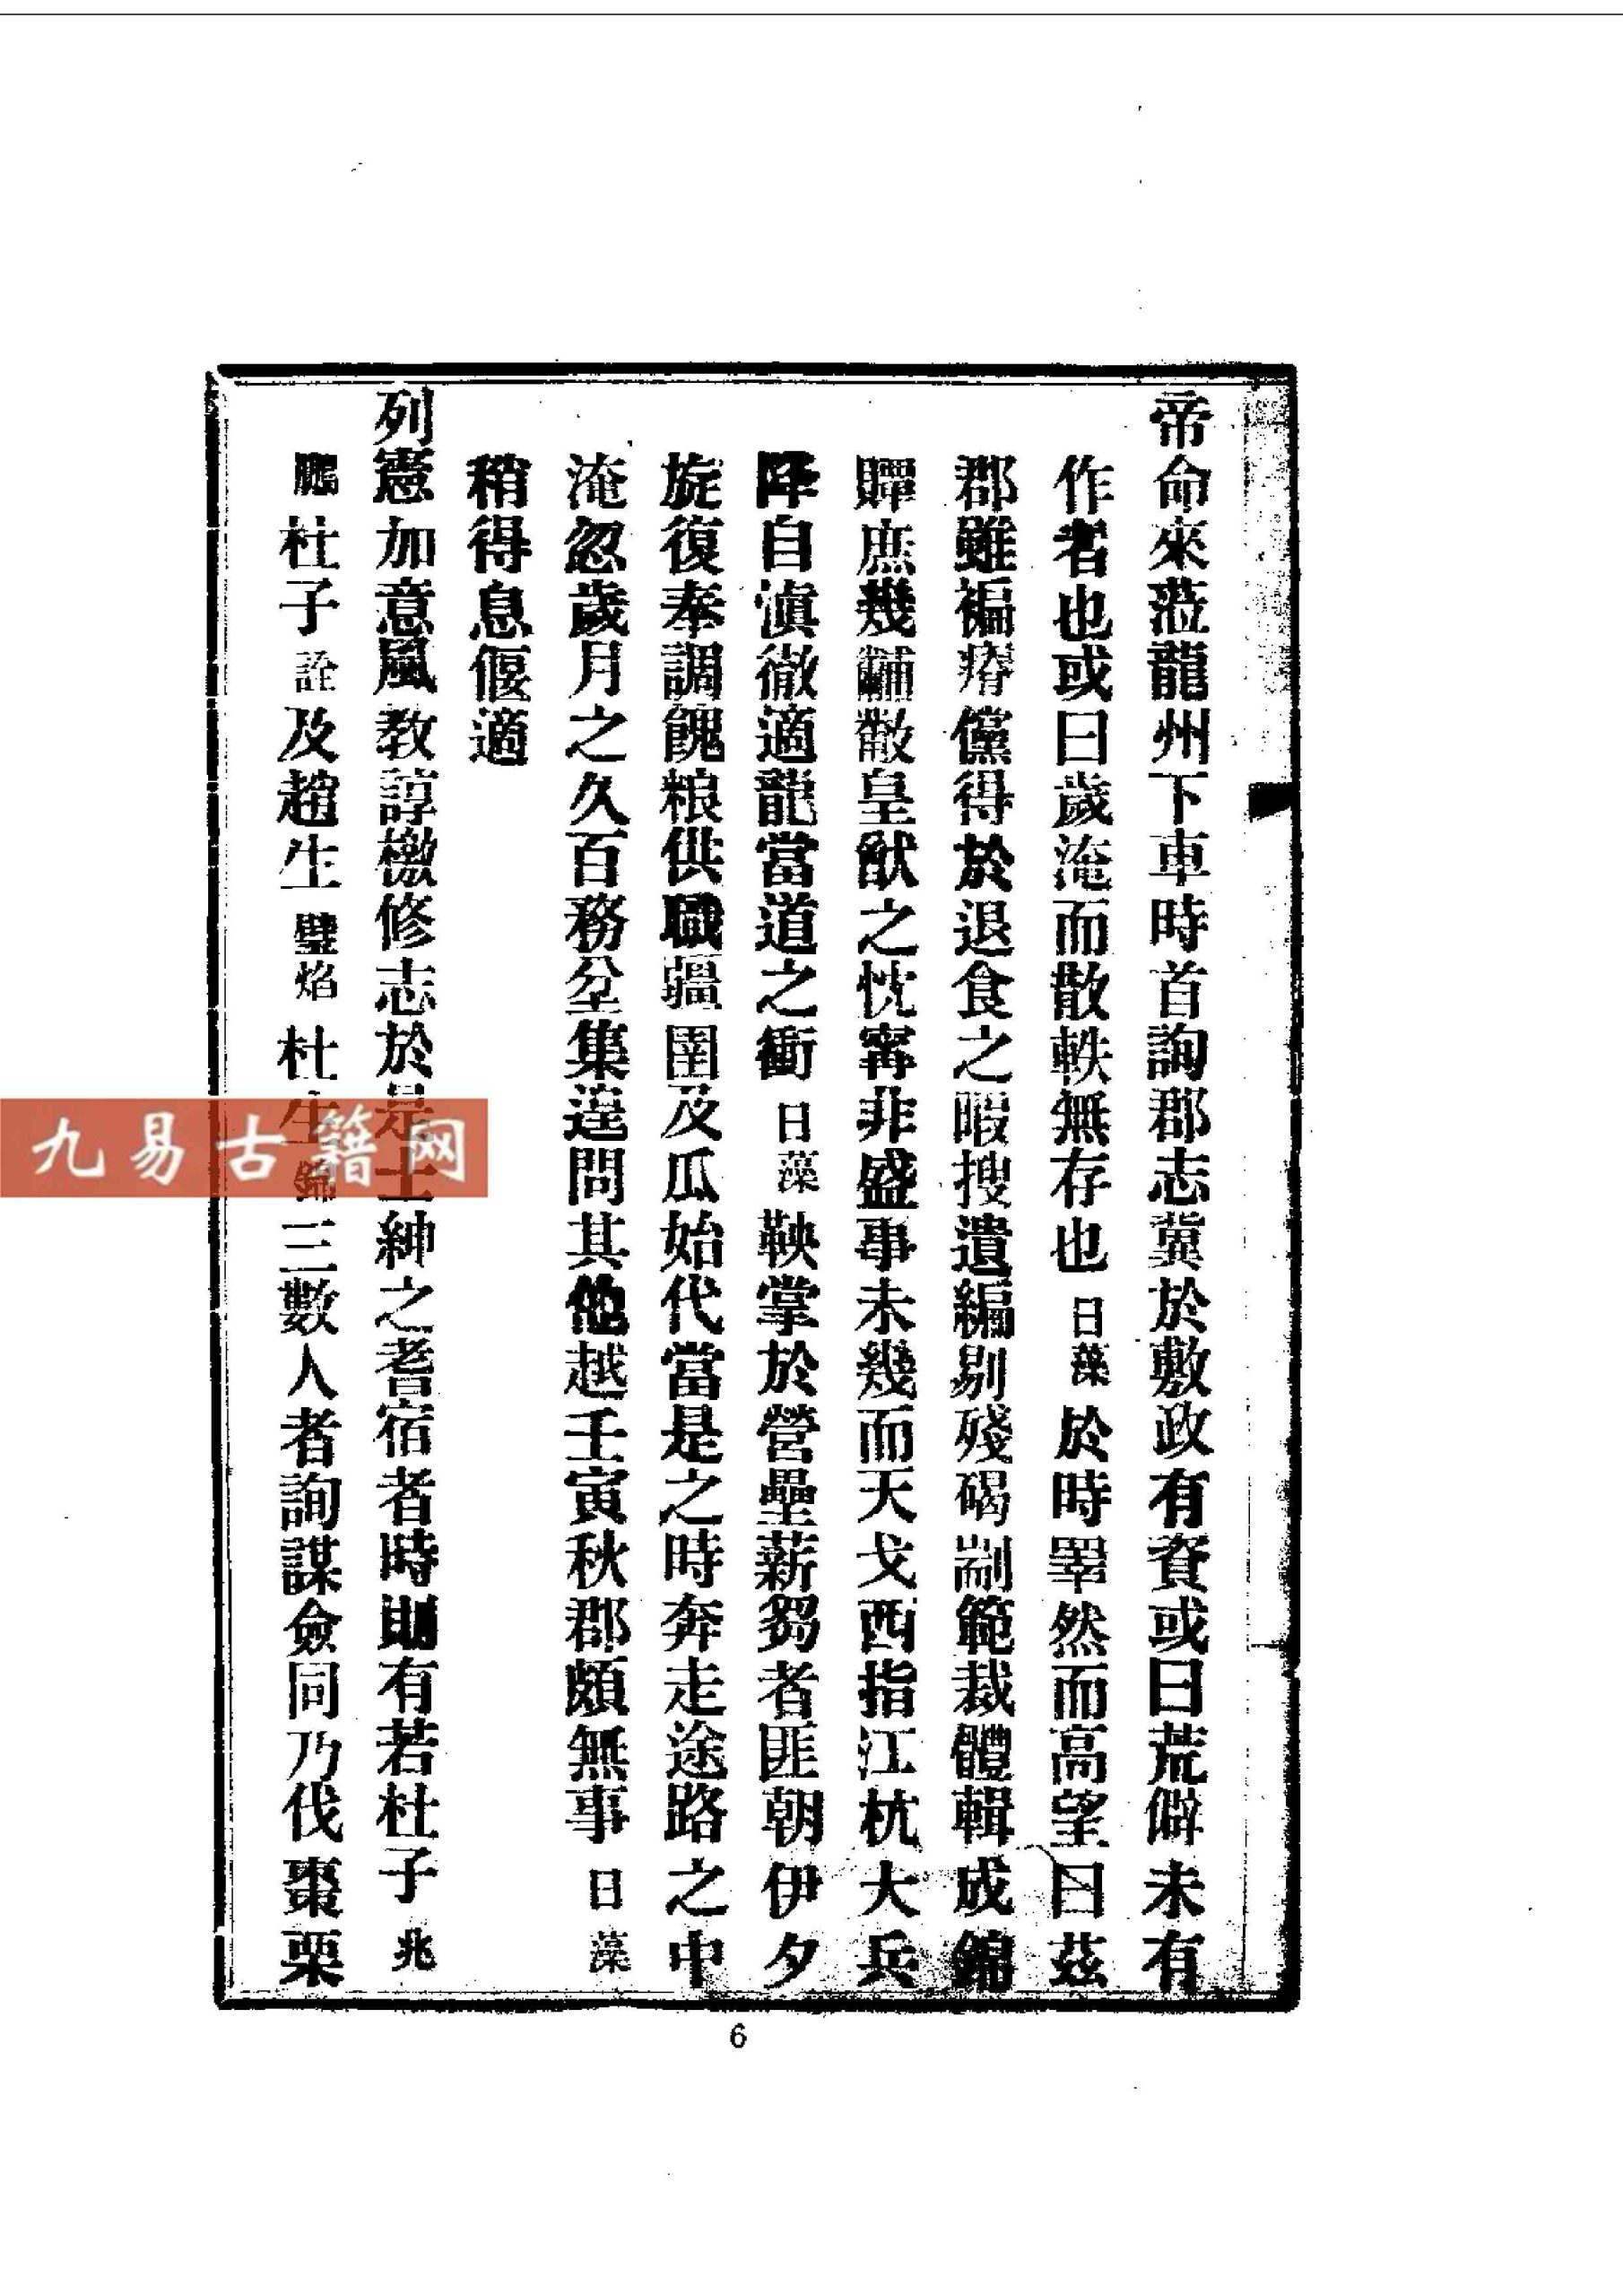 帝命來蒞龍州下車時首詢郡志冀於敷政有資或曰荒僻未有
作者也或曰歲淹而散軼無存也日藻於時睪然而高望曰茲
郡雖褊瘠儻得於退食之暇搜遺編剔殘碣剬範裁體輯成錦
賱庶幾黼黻皇猷之忱寧非盛事未幾而天戈西指江杭大兵
降自滇徹適龍當道之衝日藻鞅掌於營壘薪芻者匪朝伊夕
旋復奉調餽粮供職疆圉及瓜始代當是之時奔走途路之中
淹忽歲月之久百務坌集遑問其他越壬寅秋郡頗無事日藻
稍得息偃適
列憲加意風教諄檄修志於是士紳之耆宿者時則有若杜子兆
鵬杜子詮及趙生璧焰杜生錦三數人者詢謀僉同乃伐棗栗
九易古籍网
6